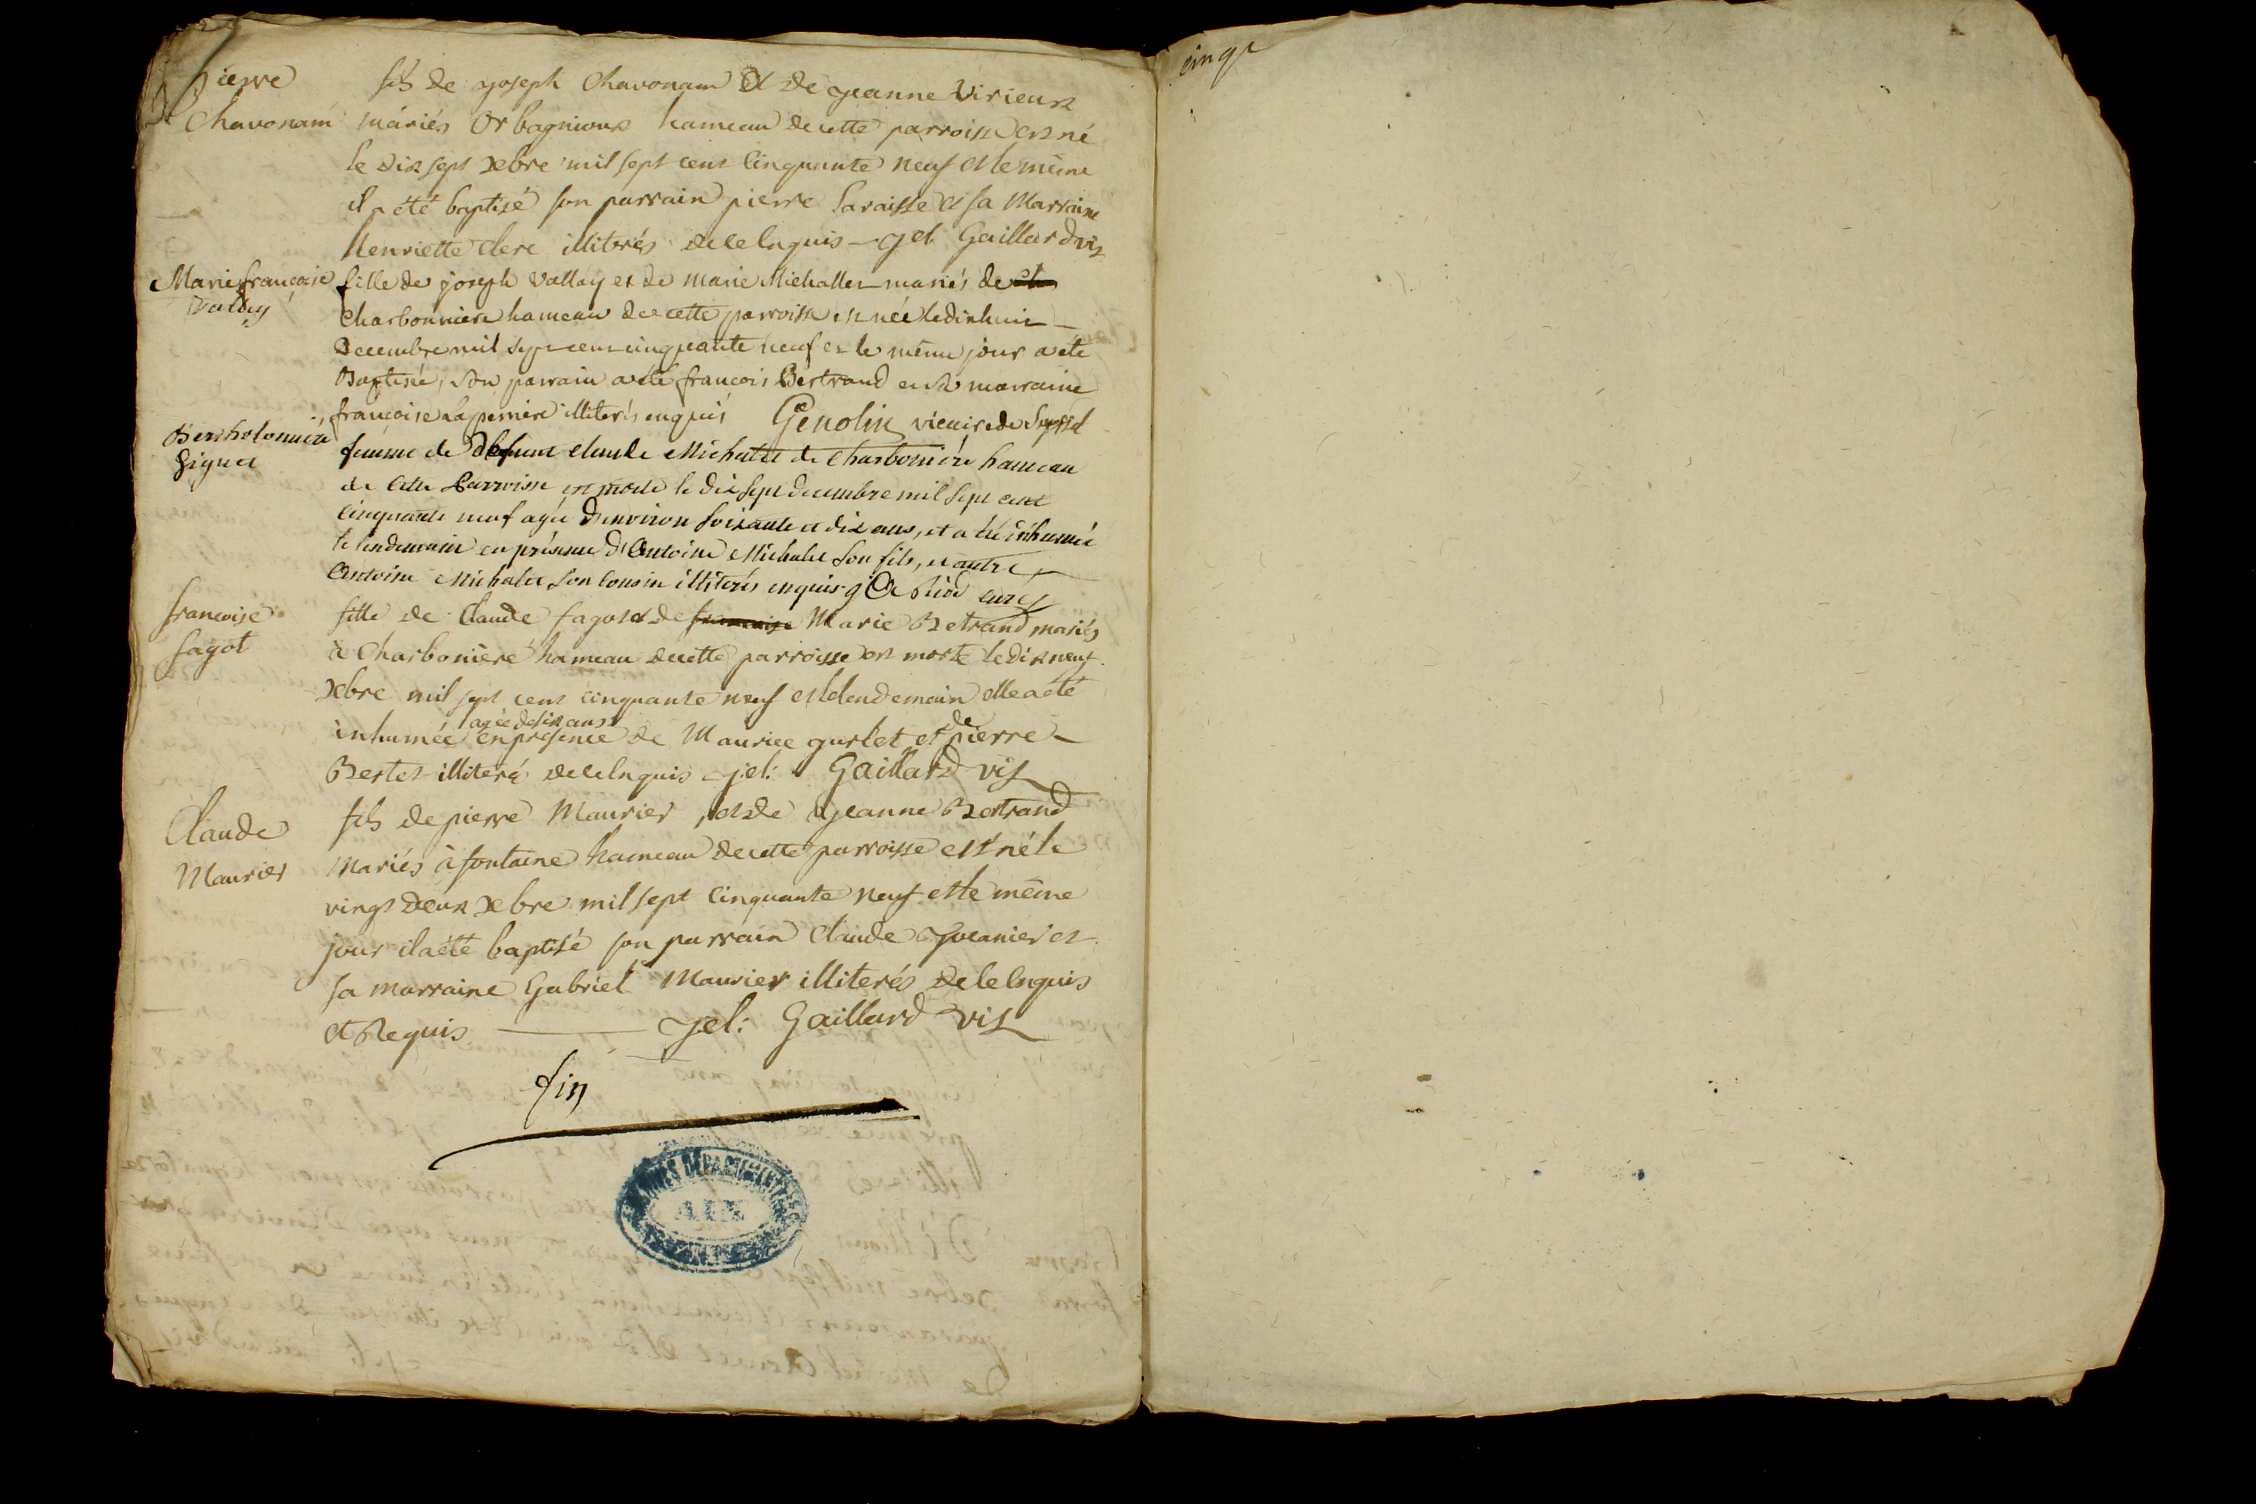 Pierre
Chavonam
fils de joseph Chavonam & de jeanne Virieux
mariés Orbagnioux hameau de cette parroisse est né
le dix sept Xbre mil sept cent Cinquante neuf et le même
il a été baptisé son parrain pierre Saraisse et sa Marraine
Henriette Clerc illiterés de ce Enquis gel Gaillard vis
Marie françoise
Vallay
fille de joseph Vallay et de Marie Michallet mariés de
Charbonniere hameau de cette parroisse est née le dix huit
Decembre mil sept cent cinquante neuf et le même jour a été
Baptisée, son parrain a été françois Bertrand et sa marraine
françoise La perriere illiterés enquis Genolin vicaire de Seyssel
Bertholomée
Gignet
femme de defunt Claude Michalet de Charboniére hameau
de Cette Parroisse est morte le dix sept decembre mil sept cent
Cinquante neuf agée d'environ soixante et dix ans, et a été inhumée
le lendemain en présence d'Antoine Michalet son fils, et autre
Antoine Michalet son cousin illiterés enquis curé
francoise
fagot
fille de Claude fagot et de francoise Marie Betrand mariés
à Charboniere hameau de cette parroisse est morte le dix neuf
Xbre mil sept cent cinquante neuf et le lendemain elle a été
agée de six ans
inhumée en présence de Maurice gurlet et de pierre
Bertet illiteré de ce Enquis gel: Gaillard vis
Claude
Maurier
fils de pierre Maurier, et de jeanne Bertrand
Mariés à fontaine hameau de cette parroisse est né le
vingt deux Xbre mil sept Cinquante neuf et le même
jour il a été baptisé son parrain Claude et
sa marraine Gabriel Maurier illiterés de ce Enquis
et Requis gel: Gaillard vis
fin
ARCHIVES DÉPARTEMENTALES
AIN
cinq